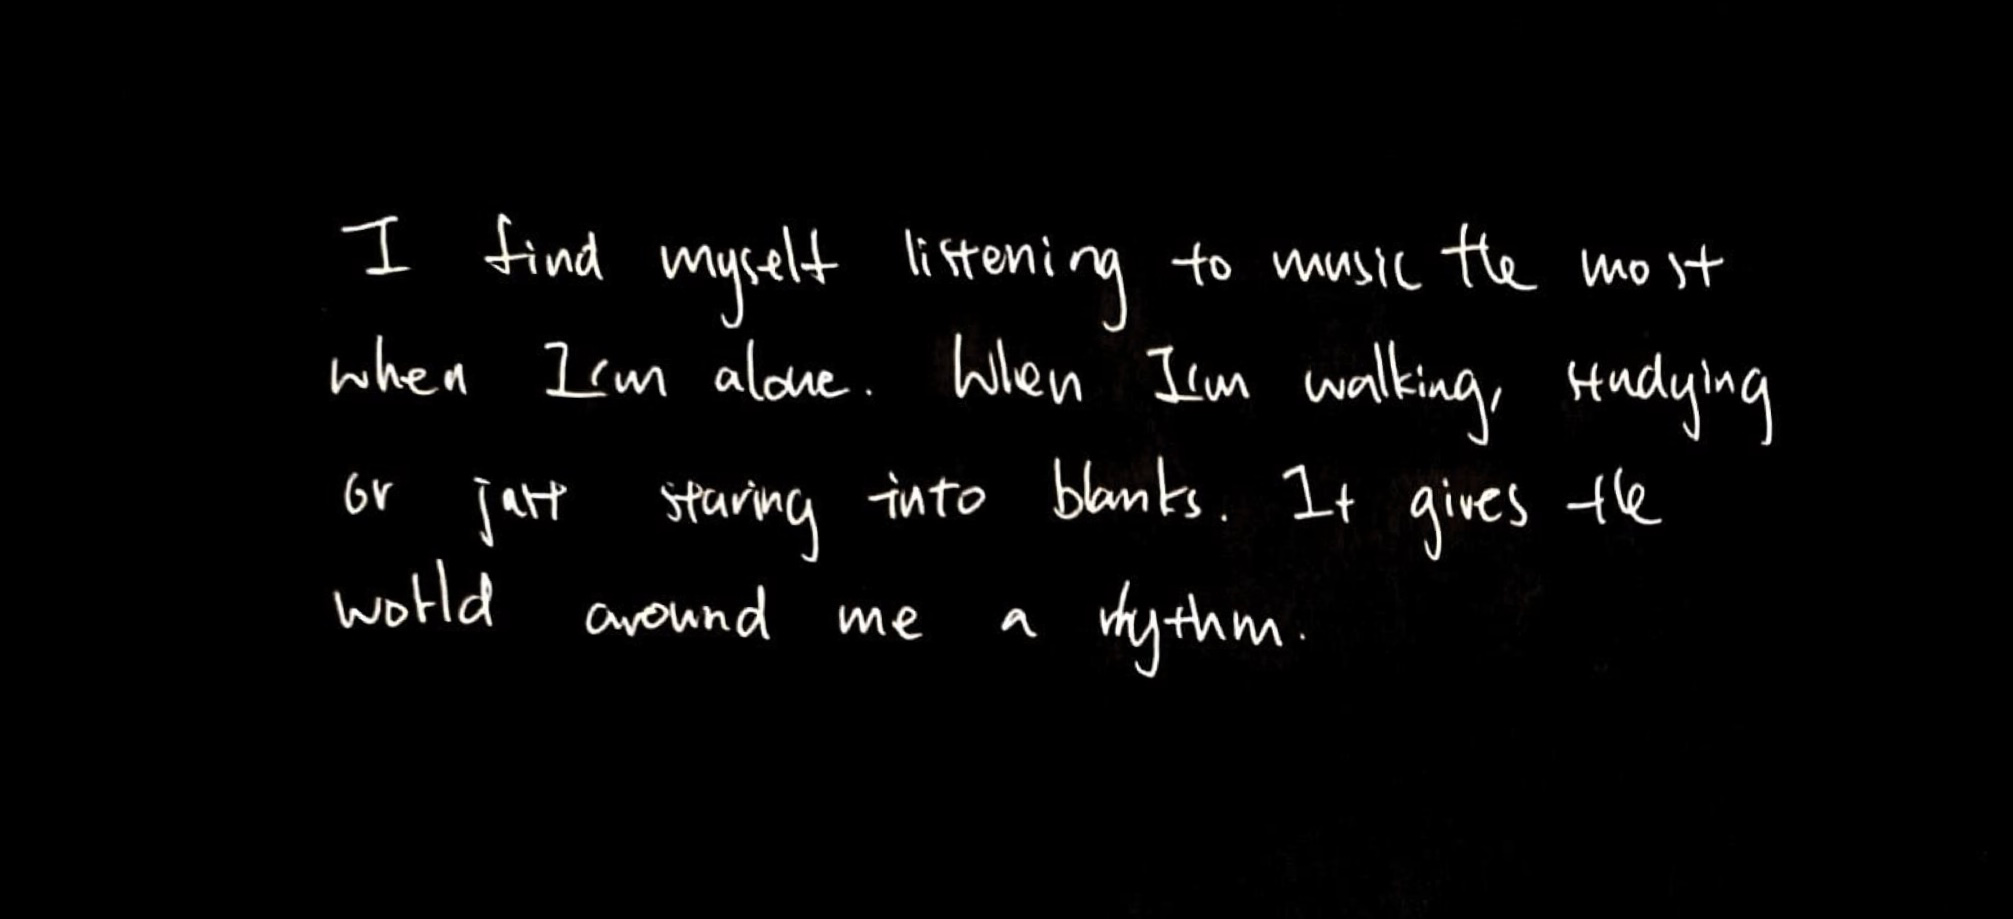 I find myself listening to music the most
when I am alone. When I am walking, studying
or just staring into blanks. It gives the
world around me a rhythm.